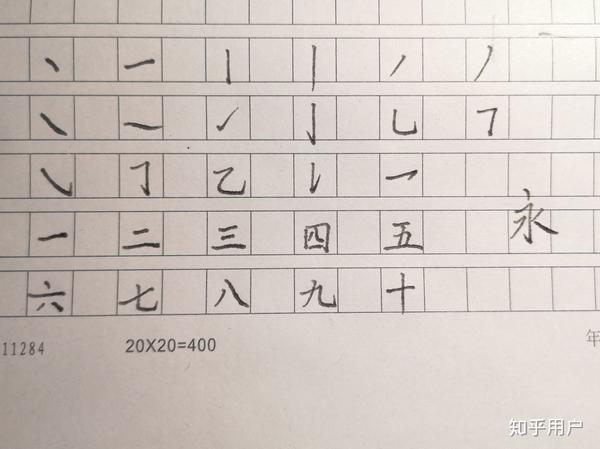 丶 一 丨 丨 ㇒ 丿
㇏ 一 ㇀ 亅 乚 ㇕
㇏ ㇆ 乙 ㇙ ㇖
一 二 三 四 五 永
六 七 八 九 十
11284 20X20=400 年
知乎用户